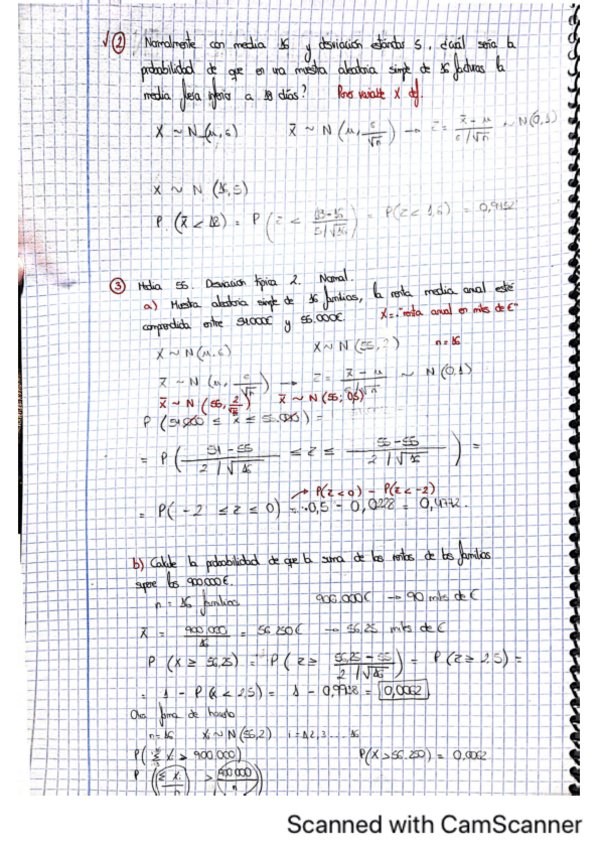 √② Normalmente con media 16 y desviación estándar 5, ¿cuál sería la
probabilidad de que en una muestra aleatoria simple de 16 facturas la
media fuera inferior a 18 días? Poner variable X def.
X ~ N (μ, σ) x̄ ~ N (μ, σ/√n) → z = (x̄ - μ)/(σ/√n) ~ N(0,1)
X ~ N (16, 5)
P (x̄ < 18) = P (z < (18-16)/(5/√16)) = P(z < 1,6) = 0,9452
③ Media 55. Desviación típica 2. Normal.
a) Muestra aleatoria simple de 16 familias, la renta media anual esté
comprendida entre 54.000€ y 55.000€. X = "renta anual en miles de €"
X ~ N (μ, σ) X ~ N (55, 2) n = 16
x̄ ~ N (μ, σ/√n) → z = (x̄ - μ)/(σ/√n) ~ N (0,1)
x̄ ~ N (55, 2/√16) x̄ ~ N (55; 0,5)
P (54.000 ≤ x̄ ≤ 55.000) =
= P ( (54 - 55)/(2/√16) ≤ z ≤ (55 - 55)/(2/√16) ) =
→ P(z < 0) - P(z < -2)
= P( -2 ≤ z ≤ 0) = 0,5 - 0,0228 = 0,4772.
b) Calcule la probabilidad de que la suma de las rentas de las familias
supere los 900.000€.
n = 16 familias 900.000€ → 90 miles de €
x̄ = 900.000/16 = 56.250€ → 56,25 miles de €
P (X ≥ 56,25) = P ( z ≥ (56,25 - 55)/(2/√16) ) = P (z ≥ 2,5) =
= 1 - P (z < 2,5) = 1 - 0,9938 = 0,0062
Otra forma de hacerlo
n = 16 Xi ~ N (55, 2) i = 1, 2, 3 ... 16
P( Σ Xi > 900.000) P(X > 56.250) = 0,0062
P ( Σ Xi / n > 900.000 / n )
Scanned with CamScanner